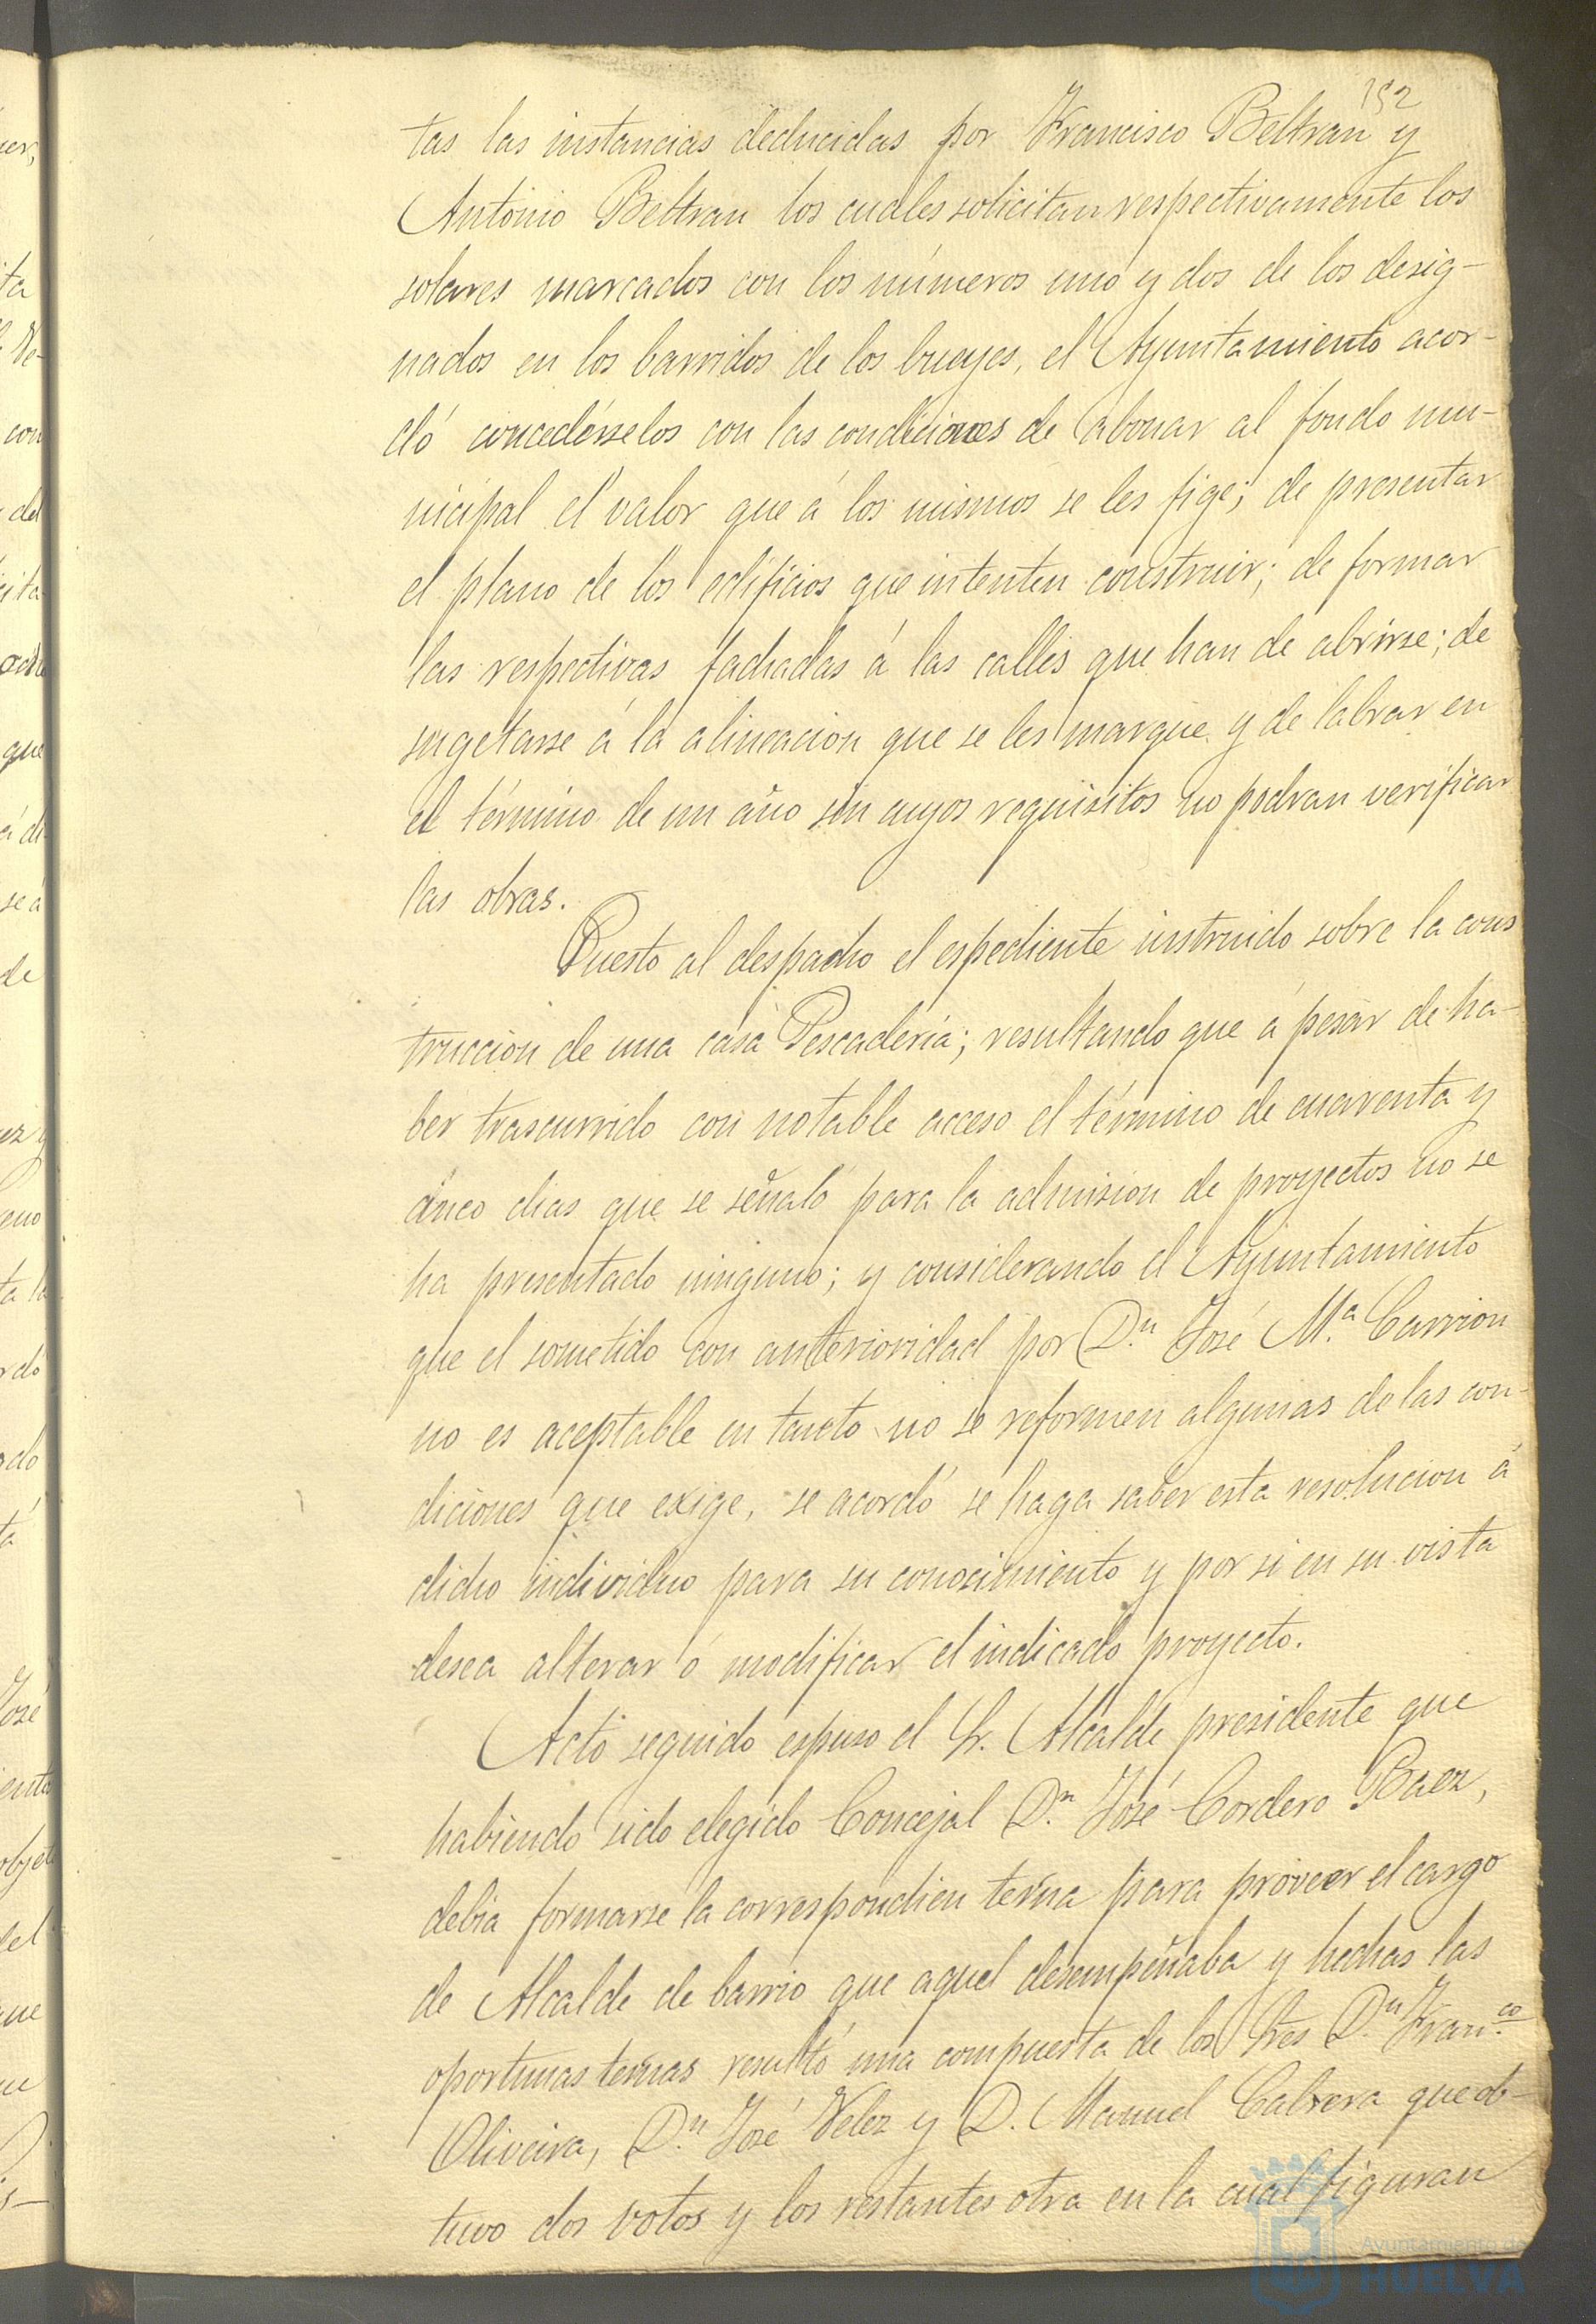 152
tas las instancias deducidas por Francisco Beltran y
Antonio Beltran los cuales solicitan respectivamente los
solares marcados con los números uno y dos de los desig-
nados en los barridos de los bueyes, el Ayuntamiento acor-
dó concedérselos con las condiciones de abonar al fondo mu-
nicipal el valor que á los mismos se les fige; de presentar
el plano de los edificios que intenten construir; de formar
las respectivas fachadas á las calles que han de abrirse; de
sugetarse á la alineacion que se les marque y de labrar en
el término de un año sin cuyos requisitos no podran verificar
las obras.
Puesto al despacho el espediente instruido sobre la cons
truccion de una casa Pescadería; resultando que á pesar de ha-
ber trascurrido con notable acceso el término de cuarenta y
cinco dias que se señaló para la admision de proyectos no se
ha presentado ninguno; y considerando el Ayuntamiento
que el sometido con anterioridad por Dn. José Ma. Carrion
no es aceptable en tanto no se reformen algunas de las con-
diciones que exige, se acordó se haga saber esta resolucion á
dicho individuo para su conocimiento y por si en su vista
desea alterar ó modificar el indicado proyecto.
Acto seguido espuso el Sr. Alcalde presidente que
habiendo sido elegido Concejal Dn. José Cordero Baez,
debia formarse la correspondien terna para proveer el cargo
de Alcalde de barrio que aquel desempeñaba y hechas las
oportunas ternas resultó una compuesta de los Sres Dn. Franco.
Oliveira, Dn. José Velez y D. Manuel Cabrera que ob-
tuvo dos votos y los restantes otra en la cual figuran
Ayuntamiento de
HUELVA